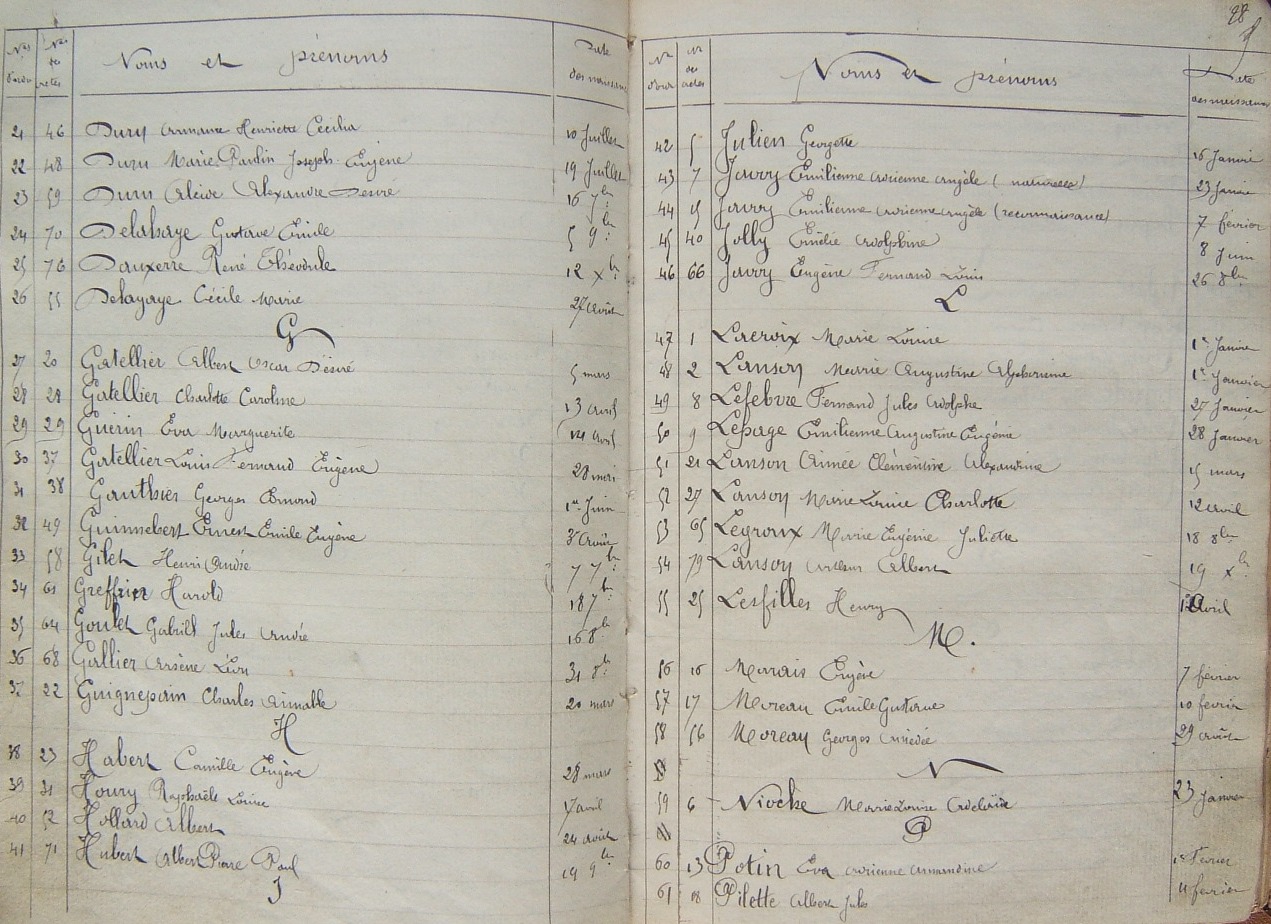 Nos d'ordre Nos des actes Noms et prénoms Date des naissances
21 46 Duru Armance Henriette Cécilia 10 Juillet
22 48 Duru Marie Paulin Joseph Eugène 19 Juillet
23 59 Duru Alcide Alexandre Désiré 16 7bre
24 70 Delahaye Gustave Emile 5 9bre
25 76 Dauxerre René Théodule 12 Xbre
26 55 Delayaye Cécile Marie 27 août
G
27 20 Gatellier Albert Oscar Désiré 5 mars
28 28 Gatellier Charlotte Caroline 13 avril
29 29 Guérin Eva Marguerite 14 avril
30 37 Gatellier Louis Fernand Eugène 28 mai
31 38 Gauthier Georges Edmond 1er Juin
32 49 Guinnebert Ernest Emile Eugène 3 août
33 58 Gilet Henri André 7 7bre
34 61 Greffier Harold 18 7bre
35 64 Goulet Gabriel Jules André 16 8bre
36 68 Gallier Arsène Léon 31 8bre
37 22 Guignepain Charles Aimable 20 mars
H
38 23 Habert Camille Eugène 28 mars
39 31 Houry Raphaële Louise avril
40 52 Hollard Albert 24 août
41 71 Hubert Albert Pierre Paul 19 9bre
J
28
No d'ordre No des actes Noms et prénoms Date des naissances
42 5 Julien Georgette 16 Janvier
43 7 Javoy Emilienne Adrienne Angèle (naturelle) 23 Janvier
44 15 Javoy Emilienne Adrienne Angèle (reconnaissance) 7 février
45 40 Jolly Emélie Adolphine 8 Juin
46 66 Javoy Eugène Fernand Louis 26 8bre
L
47 1 Lacroix Marie Louise 1er Janvier
48 2 Lanson Marie Augustine 1er Janvier
49 8 Lefebvre Fernand Jules Adolphe 27 Janvier
50 9 Lepage Emilienne Augustine Eugénie 28 Janvier
51 21 Lanson Aimée Clémentine Alexandrine 15 mars
52 27 Lanson Marie Louise Charlotte 12 avril
53 65 Legroux Marie Eugénie Juliette 18 8bre
54 79 Lanson Arthur Albert 19 Xbre
55 25 Lesfilles Henry avril
M.
56 16 Marais Eugène 7 février
57 17 Moreau Emile Gustave 10 février
58 56 Moreau Georges Amédée 29 août
N
59 6 Nioche Marie Louise Adélaïde 23 Janvier
P
60 13 Potin Eva Adrienne Amandine 1er février
61 18 Pilette Albert Jules 11 février